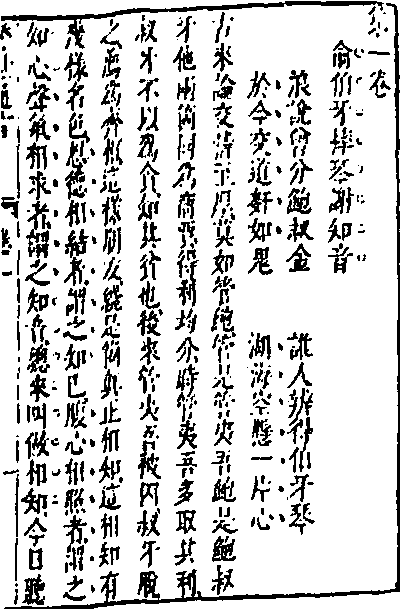 第一卷
俞伯牙摔琴謝知音
浪說曾分鮑叔金　誰人辨得伯牙琴
於今交道奸如鬼　湖海空懸一片心
古來論交情至厚莫如管鮑管是管夷吾鮑是鮑叔
牙他兩個同為商賈得利均分時管夷吾多取其利
叔牙不以為貪知其貧也後來管夷吾被囚叔牙脫
之薦為齊相這樣朋友纔是個真正相知這相知有
幾樣名色恩德相結者謂之知己腹心相照者謂之
知心聲氣相求者謂之知音總來叫做相知今日聽